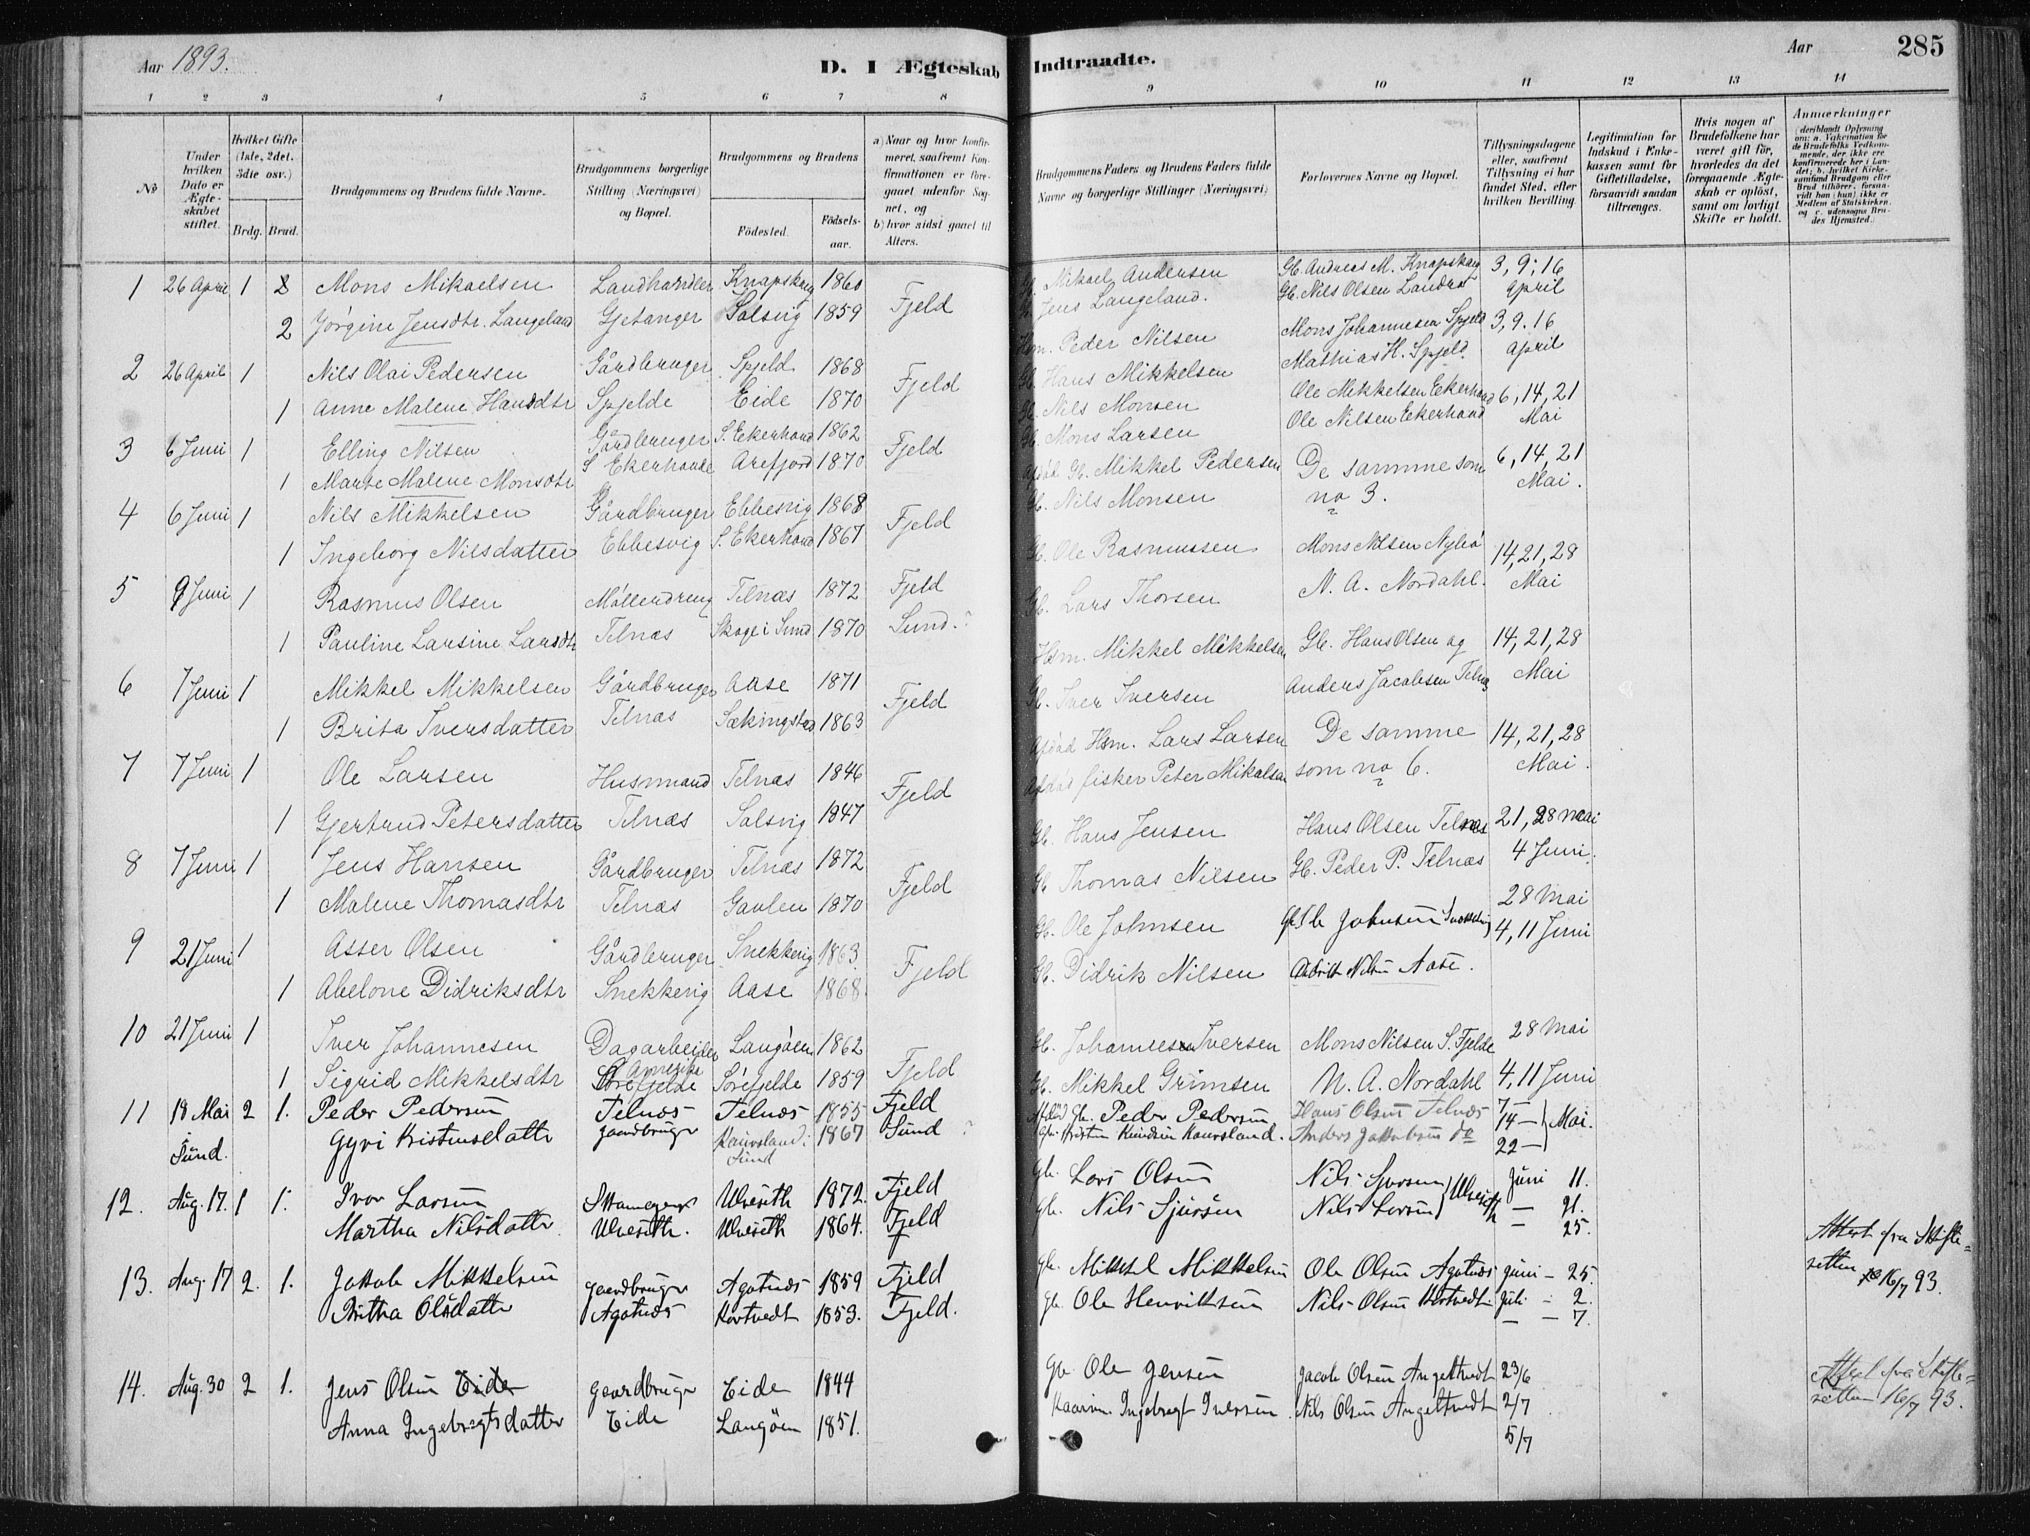 Aar 1893.
D. I Ægteskab Indtraadte.
Aar
285
1 2 3 4 5 6 7 8 9 10 11 12 13 14
No
Under hvilken Dato er Ægteskabet stiftet.
Hvilket Gifte (1ste, 2det, 3die osv.)
Brdg. Brud.
Brudgommens og Brudens fulde Navne.
Brudgommens borgerlige Stilling (Næringsvei) og Bopæl.
Brudgommens og Brudens
Födested. Födselsaar.
a) Naar og hvor konfirmeret, saafremt Konfirmationen er foregaaet udenfor Sognet, og
b) hvor sidst gaaet til Alters.
Brudgommens Faders og Brudens Faders fulde Navne og borgerlige Stillinger (Næringsvei)
Forlovernes Navne og Bopæl.
Tillysningsdagene eller, saafremt Tillysning ei har fundet Sted, efter hvilken Bevilling.
Legitimation for Indskud i Enkekassen samt for Giftetilladelse, forsaavidt saadan tiltrænges.
Hvis nogen af Brudefolkene har været gift før, hvorledes da det foregaaende Ægteskab er oplöst, samt om lovligt Skifte er holdt.
Anmærkninger (deriblandt Oplysning om: a. Vakcination for de Brudefolks Vedkommende, der ikke ere konfirmerede her i Landet; b. hvilket Kirkesamfund Brudgom eller Brud tilhörer, forsaavidt han (hun) ikke er Medlem af Statskirken, og c. udensogns Brudes Hjemsted.)
1 26 April 1 2 Mons Mikaelsen Landhandler Knapskog 1860 Fjeld Gb. Mikael Andersen Gb. Andreas M. Knapskog 3, 9, 16 April
2 Jørgine Jensdtr. Langeland Gjetanger Solsvig 1859 Gb. Jens Langeland. Gb. Nils Olsen Landro
2 26 April 1 Nils Olai Pedersen Gårdbruger Spjeld 1868 Fjeld Hsm. Peder Nilsen Mons Johannesen Spjeld 3, 9. 16 April
1 Anne Malene Hansdtr Spjelde Eide 1870 Gb. Hans Mikkelsen Mathias H. Spjeld
3 6 Juni 1 Elling Nilsen Gårdbruger S. Ekerhovd 1862 Fjeld Gb. Nils Monsen Ole Mikkelsen Ekerhovd 6, 14, 21 Mai
1 Marte Malene Monsdtr S Ekerhovde Arefjord 1870 Gb. Mons Larsen Ole Nilsen Ekerhovd
4 6 Juni 1 Nils Mikkelsen Gårdbruger Ebbesvig 1868 Fjeld Afdød Gb. Mikkel Pedersen De samme som no 3. 6, 14, 21 Mai.
1 Ingeborg Nilsdatter Ebbesvig S. Ekerhovd 1867 Gb. Nils Monsen
5 9 Juni 1 Rasmus Olsen Møllerdreng Telnæs 1872 Fjeld Gb. Ole Rasmussen Mons Nilsen Nylø 14, 21, 28 Mai
1 Pauline Larsine Larsdtr Telnæs Skoge i Sund 1870 Sund. ? Gb. Lars Thorsen N. A. Nordahl.
6 7 Juni 1 Mikkel Mikkelsen Gårdbruger Aase 1871 Fjeld Hsm. Mikkel Mikkelsen Gb. Hans Olsen og 14, 21, 28 Mai
1 Brita Iversdatter Telnæs Sækingstad 1863 Gb. Iver Iversen Anders Jacobsen Telnæs
7 7 Juni 1 Ole Larsen Husmand Telnæs 1846 Fjeld Afdød Hsm. Lars Larsen De samme 14, 21, 28 Mai.
1 Gjertrud Petersdatter Telnæs Solsvig 1847 Afdød fisker Peter Mikalsen som no 6.
8 7 Juni 1 Jens Hansen Gårdbruger Telnæs 1872 Fjeld Gb. Hans Jensen Hans Olsen Telnæs 21, 28 mai
1 Malene Thomasdtr Telnæs Gavlen 1870 Gb Thomas Nilsen Gb. Peder P. Telnæs 4 Juni.
9 21 Juni 1 Asser Olsen Gårdbruger Snekkevig 1863 Fjeld Gb. Ole Johnsen Gb Ole Johnsen Snekkevig 28 mai
1 Abelone Didriksdtr Snekkevig Aase 1868 Gb. Didrik Nilsen Didrik Nilsen Aase. 4, 11 Juni
10 21 Juni 1 Iver Johannesen Dagarbeider Langøen 1862 Fjeld Gb. Johannesen Iversen Mons Nilsen S. Fjelde 28 mai
1 Sigrid Mikkelsdtr Amerika Sørefjelde Sørefjelde 1859 Gb. Mikkel Grimsen N. A. Nordahl 4, 11 Juni
11 18 Mai 2 1. Peder Pedersen Telnæs Telnæs 1855 Fjeld Afdød Gb. Peder Pedersen Hans Olsen Telnæs 7 –
Sund. Gyri Kristensdatter gaardbruger Kausland. Sund 1867 Sund ? Gb. Kristen Knudsen Kausland. Anders Jakobsen do 14 – 22 – Mai.
12. Aug. 17. 1 1. Ivor Larsen Strømegen Ulveseth 1872 Fjeld gb. Lars Olsen Nils Sjursen Ulveseth Juni 11.
Martha Nilsdatter Ulveseth. Ulveseth 1864. Fjeld gb. Nils Sjursen Nils Larsen – 21. – 25.
13. Aug. 17 2. 1. Jakob Mikkelsen gaardbruger Agotnæs 1859 Fjeld gb. Mikkel Mikkelsen Ole Olsen Agotnæs Juni – 25. Attest fra Skifteretten 16/7 93.
Britha Olsdatter Agotnæs Kortvedt 1853. Fjeld. gb. Ole Henriksen Nils Olsen Kortvedt Juli – 2. – – 7.
14. Aug. 30 2 1. Jens Olsen Eide gaardbruger Eide 1844 gb Ole Jensen Jacob Olsen Angeltvedt 23/6 Attest fra Skifteretten 16/7 93.
Anna Ingebregtsdatter Eide Langøen 1851. Ingebregt Iversen Nils Olsen Angeltvedt 2/7
5/7